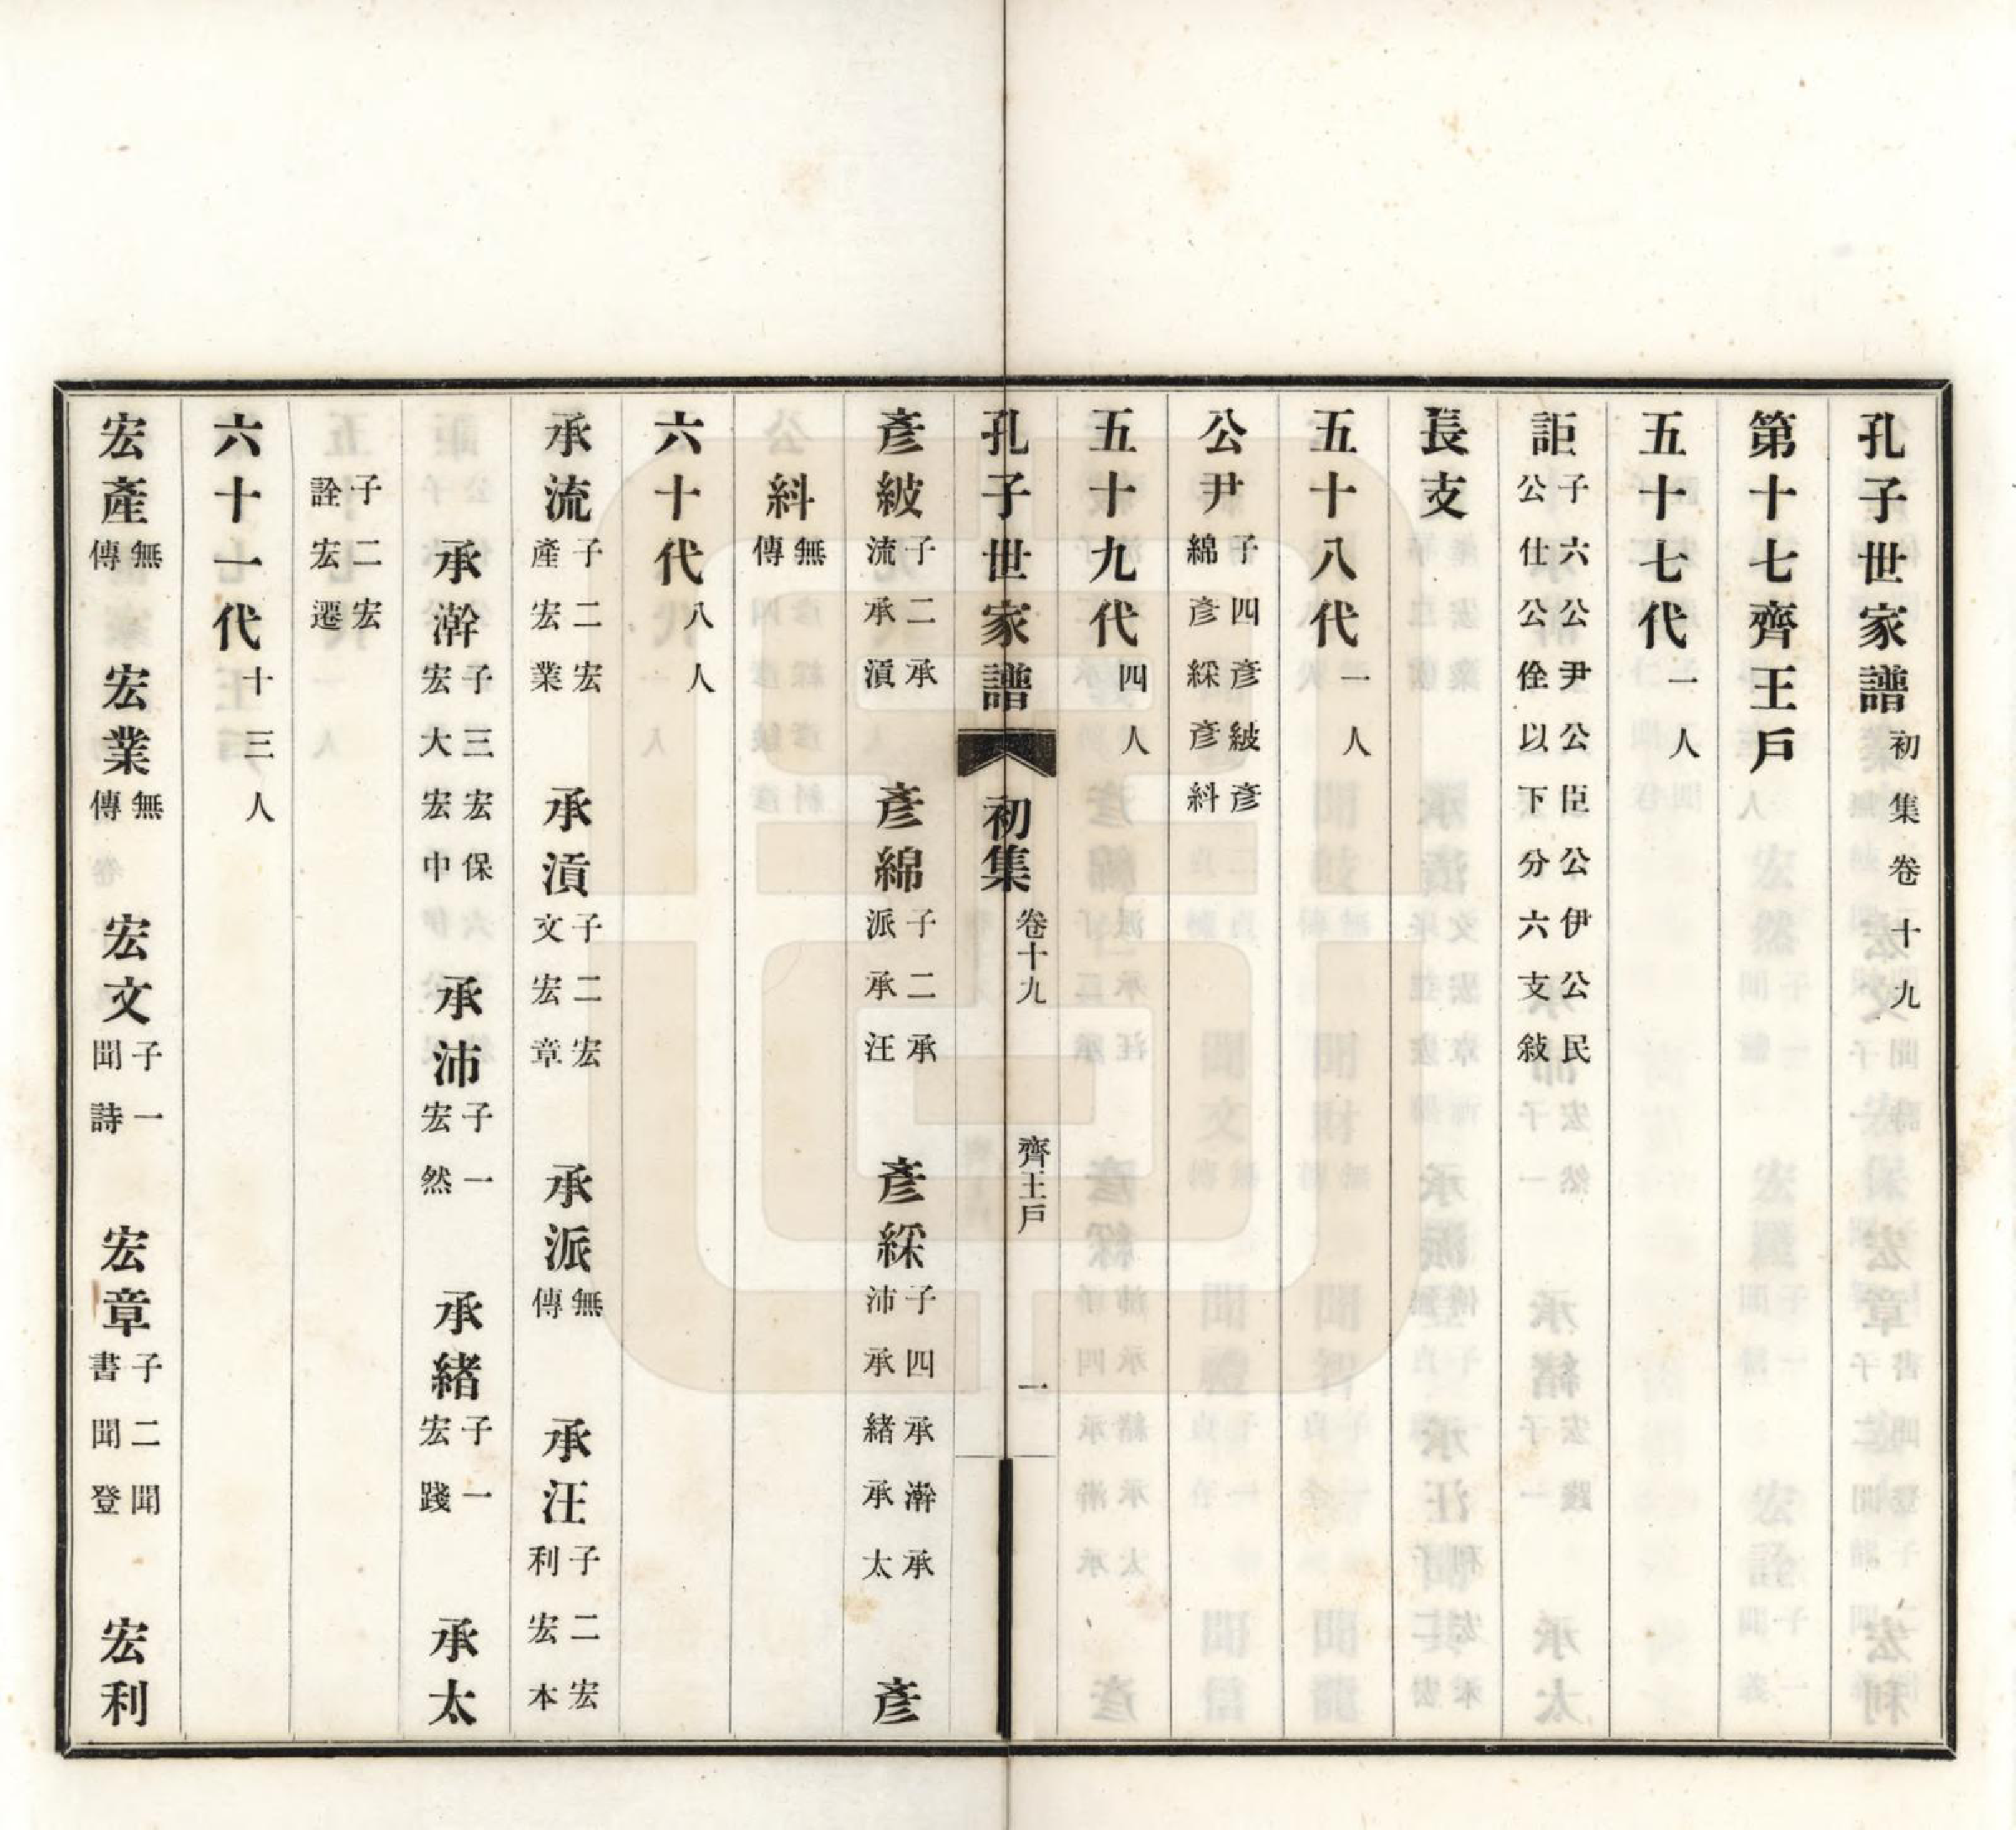 孔子世家譜初集卷十九
第十七齊王戶
五十七代一人
詎子六公尹公臣公伊公民公仕公佺以下分六支敍
長支
五十八代一人
公尹子四彥紴彥綿彥綵彥紏
五十九代四人
孔子世家譜 初集 卷十九 齊王戶 一
彥紴子二承流承湏 彥綿子二承派承汪 彥綵子四承瀚承沛承緒承太 彥
紏無傳
六十代八人
承流子二宏產宏業 承湏子二宏文宏章 承派無傳 承汪子二宏利宏本
承瀚子三宏保宏大宏中 承沛子一宏然 承緒子一宏踐 承太
子二宏詮宏遷
六十一代十三人
宏產無傳 宏業無傳 宏文子一聞詩 宏章子二聞書聞登 宏利